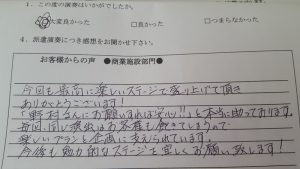 1. この度の演奏はいかがでしたか。
大変良かった □良かった □つまらなかった
4. 派遣演奏につき感想をお聞かせ下さい。
お客様からの声 ●商業施設部門●
今回も最高に楽しいステージで盛り上げて頂き
ありがとうございます！
「野村さんにお願いすれば安心!!」と本当に助かっております。
毎回、同じ演出はお客様も飽きてしまうので
楽しいプランと企画に支えられています。
今後も魅力的なステージを宜しくお願い致します！